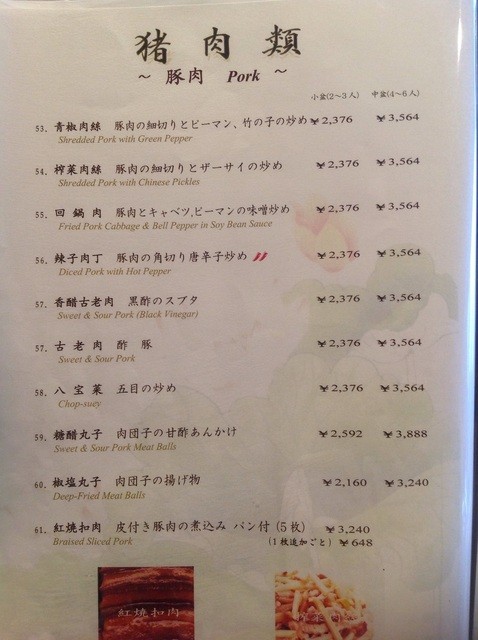 猪肉類
～ 豚肉 Pork ～
小盆(2～3人) 中盆(4～6人)
53. 青椒肉絲 豚肉の細切りとピーマン、竹の子の炒め ¥2,376 ¥3,564
Shredded Pork with Green Pepper
54. 榨菜肉絲 豚肉の細切りとザーサイの炒め ¥2,376 ¥3,564
Shredded Pork with Chinese Pickles
55. 回鍋肉 豚肉とキャベツ,ピーマンの味噌炒め ¥2,376 ¥3,564
Fried Pork Cabbage & Bell Pepper in Soy Bean Sauce
56. 辣子肉丁 豚肉の角切り唐辛子炒め ¥2,376 ¥3,564
Diced Pork with Hot Pepper
57. 香醋古老肉 黒酢のスブタ ¥2,376 ¥3,564
Sweet & Sour Pork (Black Vinegar)
57. 古老肉 酢豚 ¥2,376 ¥3,564
Sweet & Sour Pork
58. 八宝菜 五目の炒め ¥2,376 ¥3,564
Chop-suey
59. 糖醋丸子 肉団子の甘酢あんかけ ¥2,592 ¥3,888
Sweet & Sour Pork Meat Balls
60. 椒塩丸子 肉団子の揚げ物 ¥2,160 ¥3,240
Deep-Fried Meat Balls
61. 紅焼扣肉 皮付き豚肉の煮込み パン付(5枚) ¥3,240
Braised Sliced Pork (1枚追加ごと) ¥648
紅焼扣肉 榨菜肉